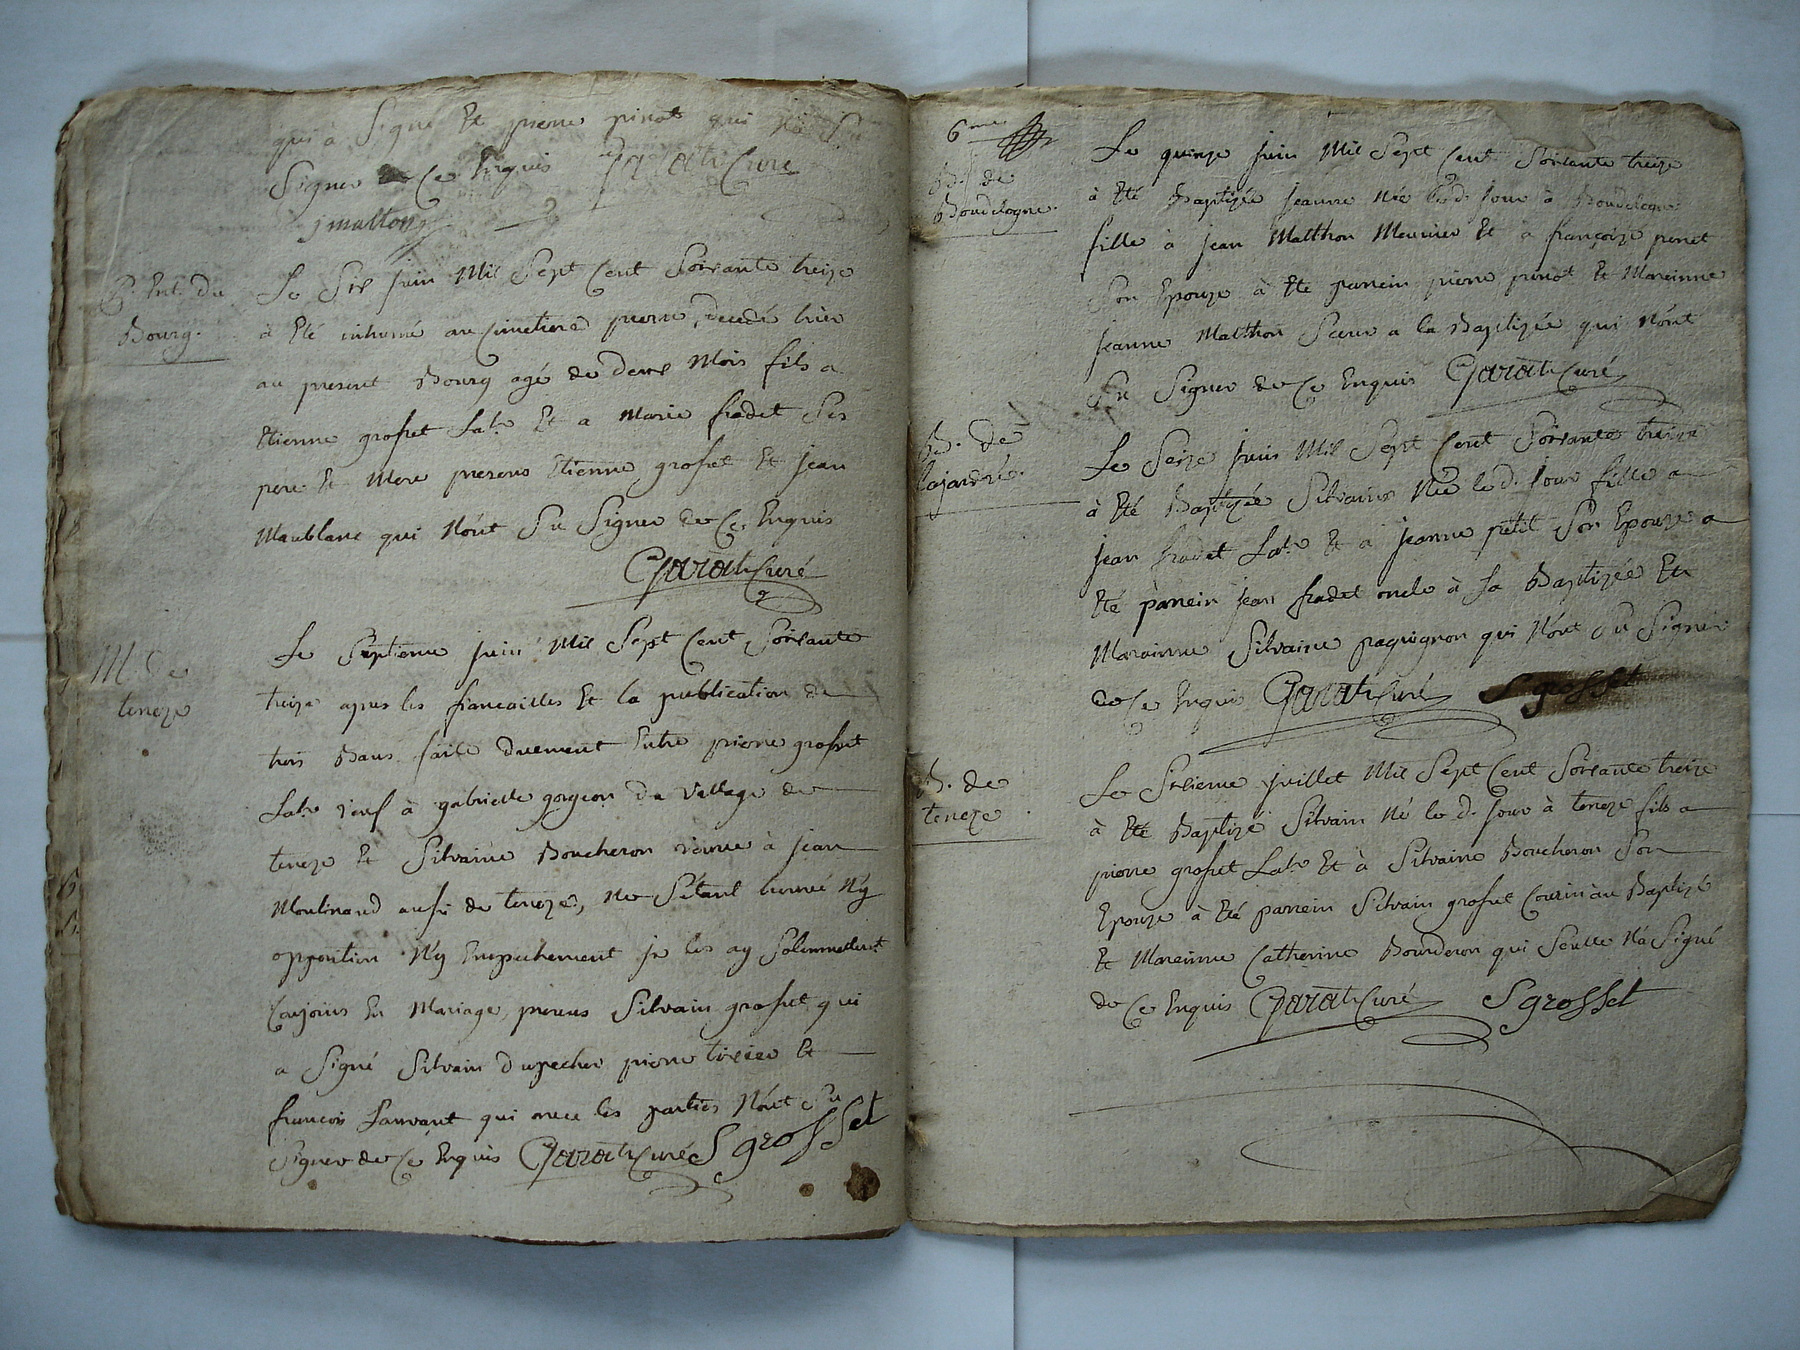 qui à Signé Et pierre pinot qui n'a Su
Signer de Ce Enquis Garat Curé
jmalton
P. Ent. du
Bourg.
Le Six juin Mil Sept Cent Soixante treize
à Eté inhumé au cimetiere pierre, decedé hier
au present Bourg agé de deux Mois fils a
Etienne grosset Labr. Et a Marie fradet Ses
pere Et Mere presens Etienne grosset Et jean
Maublanc qui N'ont Su Signer de Ce Enquis
Garat Curé
M. de
teneze
Le Septieme juin Mil Sept Cent Soixante
treize apres les fiancailles Et la publication de
trois Bans faite duement Entre pierre grosset
Labr. veuf à gabrielle gorgeon du village de
teneze Et Silvaine Boucheron veuve à jean
Moulinaud aussi de teneze, ne S'étant trouvé N'y
opposition N'y Empechement je les ay Solemnellemt
Conjoins En Mariage, presens Silvain grosset qui
a Signé Silvain dupecher pierre tixier Et
francois Lanvant qui avec les parties N'ont Su
Signer de Ce Enquis Garat Curé S grosset
6me
B. de
Boudelogne.
Le quinze juin Mil Sept Cent Soixante treize
à Eté Baptizée jeanne Née led. jour à Boudelogne
fille à jean Malthon Meunier Et à françoize penet
Son Epouze à Eté parrein pierre pinot Et Mareinne
jeanne Malthon Sœur a la Baptizée qui N'ont
Su Signer de Ce Enquis Garat Curé
B. de
Le Seize juin Mil Sept Cent Soixante treize
à Eté Baptizée Silvaine Née led. jour fille a
jean fradet Labr. Et à jeanne petit Son Epouze a
Eté parrein jean fradet oncle à la Baptizée Et
Marainne Silvaine paquignon qui N'ont Su Signer
de Ce Enquis Garat Curé S grosset
B. de
teneze
Le Sixieme juillet Mil Sept Cent Soixante treize
à Eté Baptizé Silvain Né led. jour à teneze fils a
pierre grosset Labr. Et à Silvaine Boucheron Son
Epouze à Eté parrein Silvain grosset Cousin au Baptizé
Et Mareinne Catherine Bourderon qui Seulle N'a Signé
de Ce Enquis Garat Curé S grosset